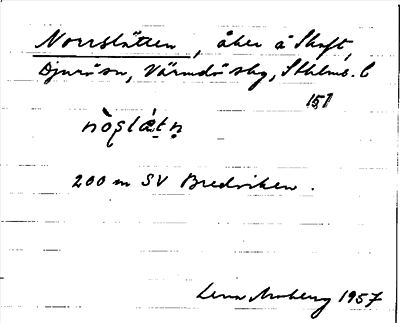 Norrslätten, åker å Skaft,
Djurö sn, Värmdö skg, Sthlms. l
151
nòsl
200 m SV Bredviken.
Lena Moberg 1957